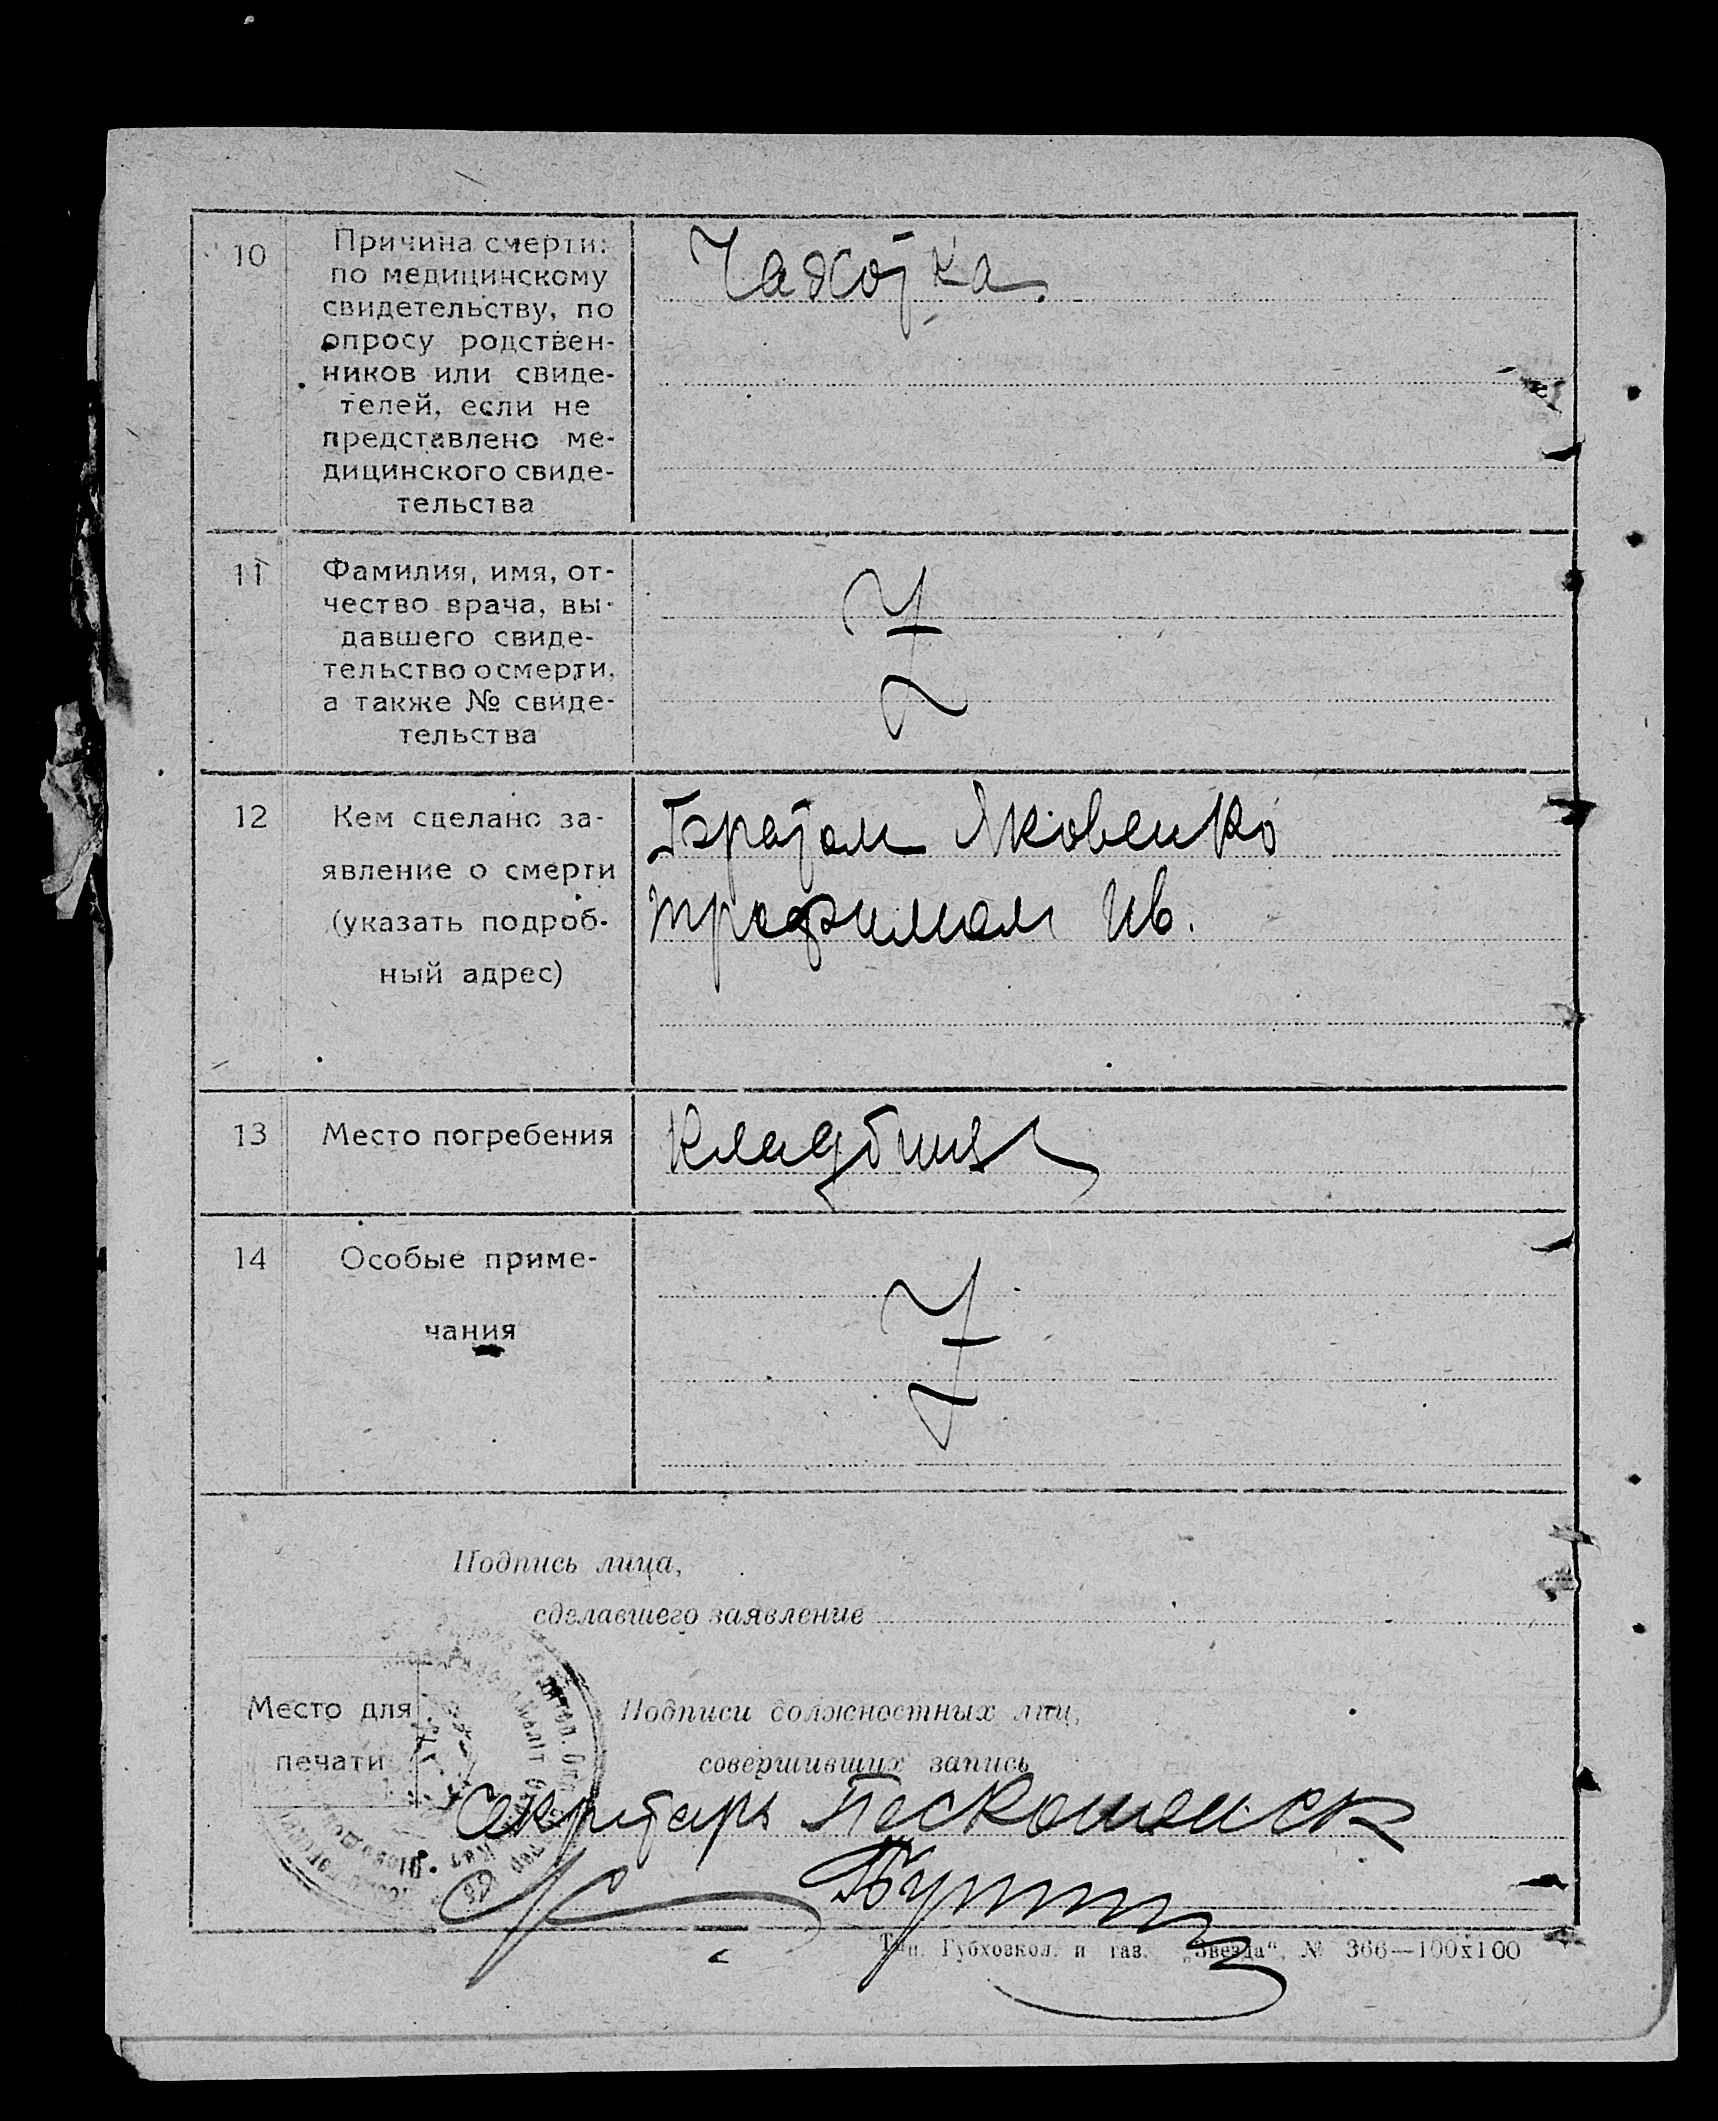 10
Причина смерти:
по медицинскому
свидетельству, по
опросу родствен-
ников или свиде-
телей, если не
представлено ме-
дицинского свиде-
тельства
Чахотка.
11
Фамилия, имя, от-
чество врача, вы-
давшего свиде-
тельство о смерти,
а также № свиде-
тельства
12
Кем сделано за-
явление о смерти
(указать подроб-
ный адрес)
Братом Яковенко
Трофимом Ив.
13
Место погребения
Кладбище
14
Особые приме-
чания
Подпись лица,
сделавшего заявление
Место для
печати
Подписи должностных лиц,
совершивших запись
Секретарь
Тип. Губхозкол. и газ. „Звезда“, № 366—100х100